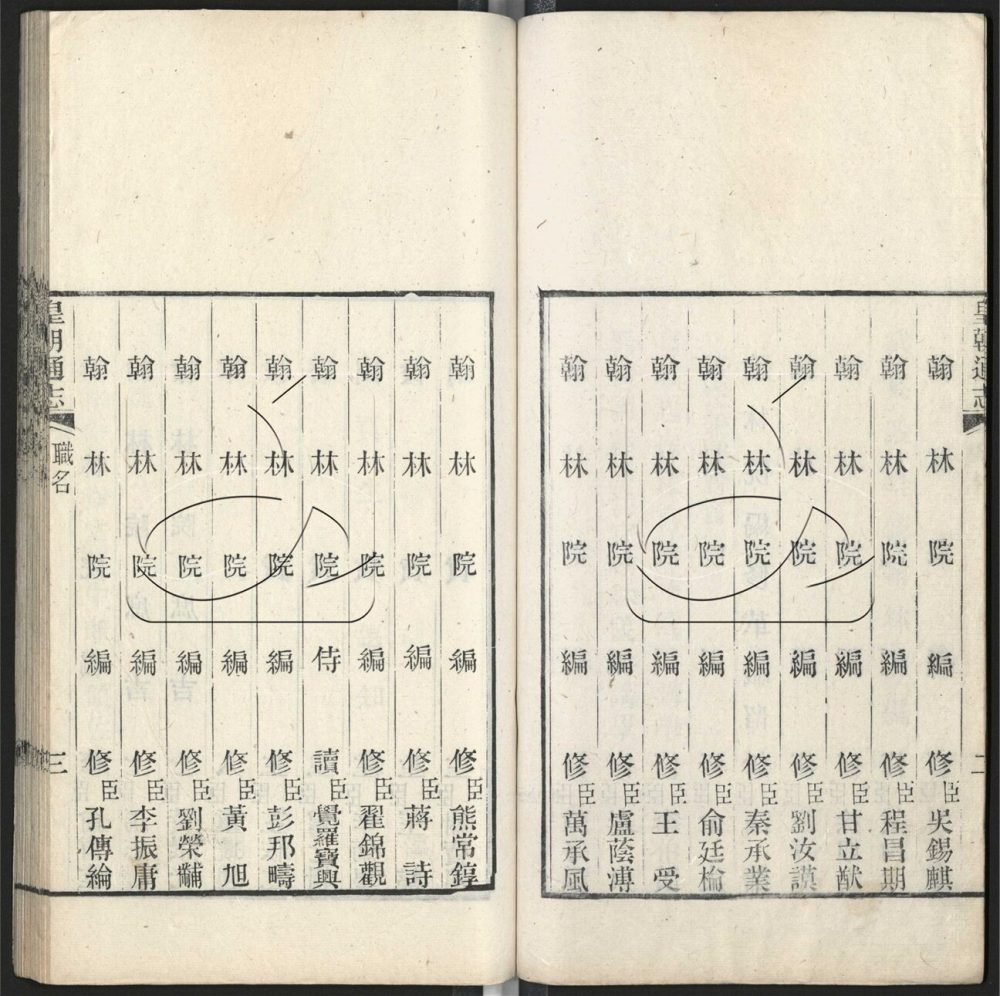 皇朝通志
二
翰林院編修臣吳錫麒
翰林院編修臣程昌期
翰林院編修臣甘立猷
翰林院編修臣劉汝謨
翰林院編修臣秦承業
翰林院編修臣俞廷棆
翰林院編修臣王受
翰林院編修臣盧蔭溥
翰林院編修臣萬承風
翰林院編修臣熊常錞
翰林院編修臣蔣詩
翰林院編修臣翟錦觀
翰林院侍讀臣覺羅寶興
翰林院編修臣彭邦疇
翰林院編修臣黃旭
翰林院編修臣劉榮黼
翰林院編修臣李振庸
翰林院編修臣孔傳綸
皇朝通志
職名
三